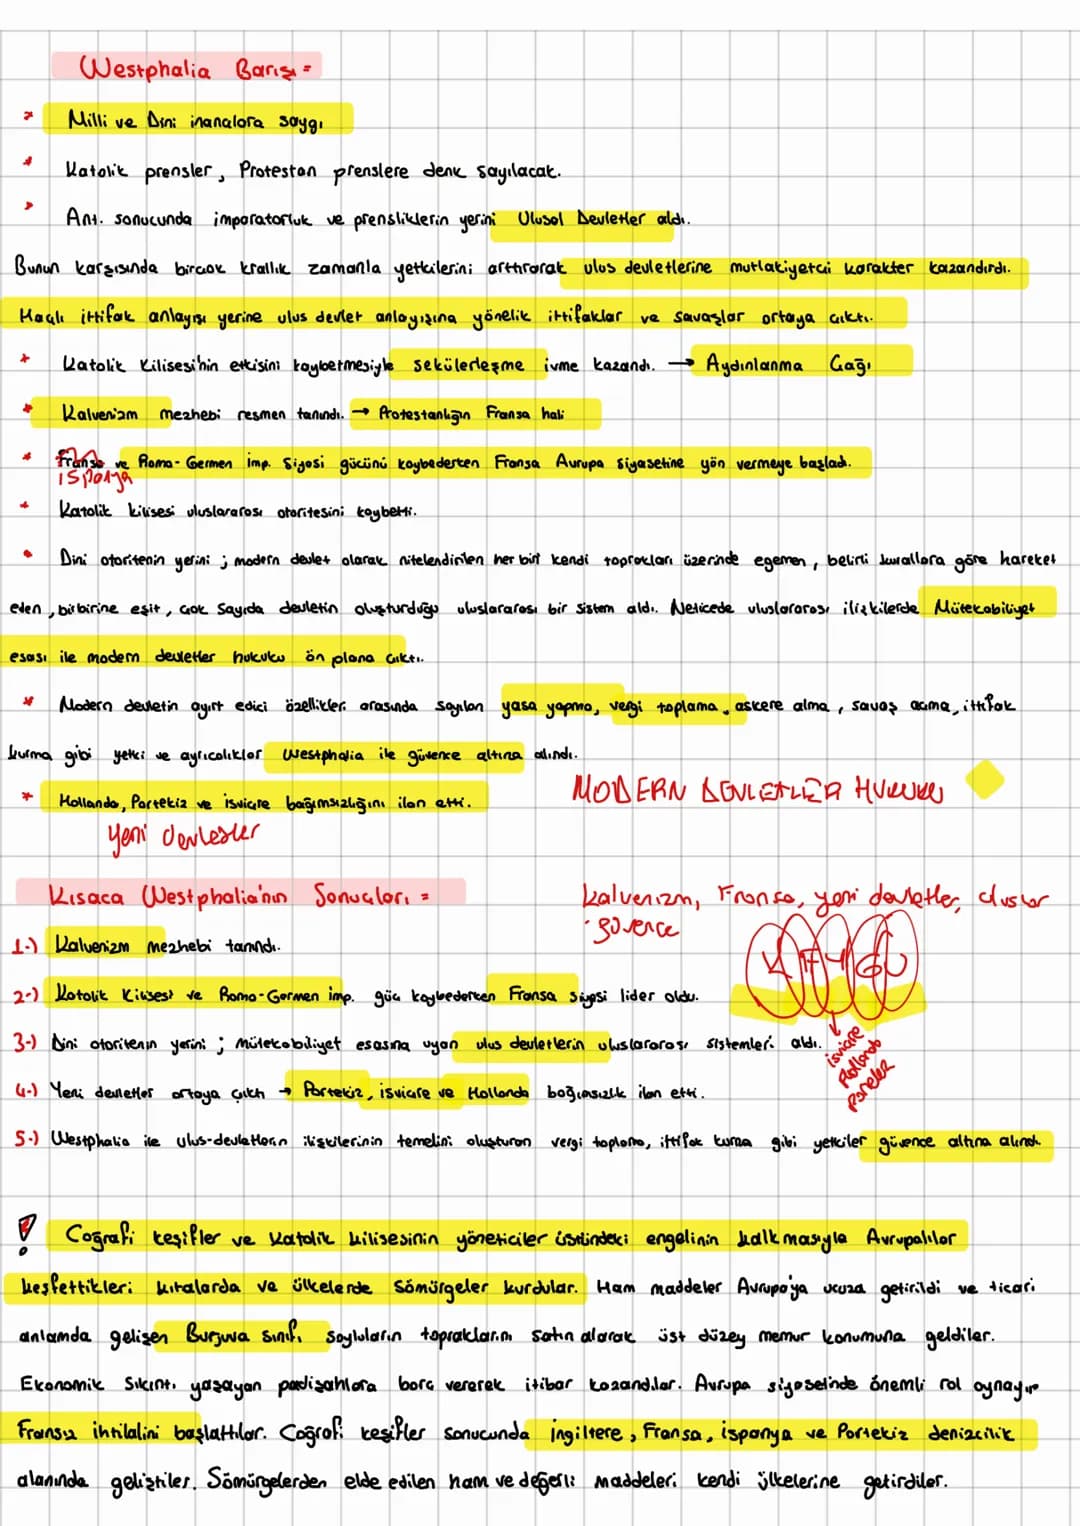 Westphalia Barışı =
* Milli ve Dini inançlara saygı
* Katolik prensler, Protestan prenslere denk sayılacak.
* Ant. sonucunda imparatorluk ve prensliklerin yerini Ulusal Devletler aldı.
Bunun karşısında birçok krallık zamanla yetkilerini arttırarak ulus devletlerine mutlakiyetçi karakter kazandırdı.
Haçlı ittifak anlayışı yerine ulus devlet anlayışına yönelik ittifaklar ve savaşlar ortaya çıktı.
* Katolik Kilisesi'nin etkisini kaybetmesiyle sekülerleşme ivme kazandı. → Aydınlanma Çağı
* Kalvenizm mezhebi resmen tanındı. → Protestanlığın Fransa hali
* Fransa ve Roma-Germen imp. Siyasi gücünü kaybederken Fransa Avrupa siyasetine yön vermeye başladı.
ispanya
* Katolik kilisesi uluslararası otoritesini kaybetti.
• Dini otoritenin yerini ; modern devlet olarak nitelendirilen her biri kendi toprakları üzerinde egemen, belirli kurallara göre hareket
eden, birbirine eşit, çok sayıda devletin oluşturduğu uluslararası bir sistem aldı. Neticede uluslararası ilişkilerde Mütekabiliyet
esası ile modern devletler hukuku ön plana çıktı.
* Modern devletin ayırt edici özellikleri arasında sayılan yasa yapma, vergi toplama, askere alma, savaş açma, ittifak
kurma gibi yetki ve ayrıcalıklar Westphalia ile güvence altına alındı.
* Hollanda, Portekiz ve isviçre bağımsızlığını ilan etti.
MODERN DEVLETLER HUKUKU
yeni devletler
Kısaca Westphalia'nın Sonuçları =
Kalvenizm, Fransa, yeni devletler, uluslar
güvence
KFYGU
1-) Kalvenizm mezhebi tanındı.
2-) Katolik Kilisesi ve Roma-Germen imp. güç kaybederken Fransa siyasi lider oldu.
3-) Dini otoritenin yerini ; mütekabiliyet esasına uyan ulus devletlerin uluslararası sistemleri aldı.
isviçre
Hollanda
4-) Yeni devletler ortaya çıktı → Portekiz, isviçre ve Hollanda bağımsızlık ilan etti.
5-) Westphalia ile ulus-devletlerin ilişkilerinin temelini oluşturan vergi toplama, ittifak kurma gibi yetkiler güvence altına alındı.
! Coğrafi keşifler ve Katolik kilisesinin yöneticiler üstündeki engelinin kalkmasıyla Avrupalılar
keşfettikleri kıtalarda ve ülkelerde Sömürgeler kurdular. Ham maddeler Avrupa'ya ucuza getirildi ve ticari
anlamda gelişen Burjuva sınıfı soyluların topraklarını satın alarak üst düzey memur konumuna geldiler.
Ekonomik Sıkıntı yaşayan padişahlara borç vererek itibar kazandılar. Avrupa siyasetinde önemli rol oynayıp
Fransız ihtilalini başlattılar. Coğrafi keşifler sonucunda ingiltere, Fransa, ispanya ve Portekiz denizcilik
alanında geliştiler. Sömürgelerden elde edilen ham ve değerli maddeleri kendi ülkelerine getirdiler.